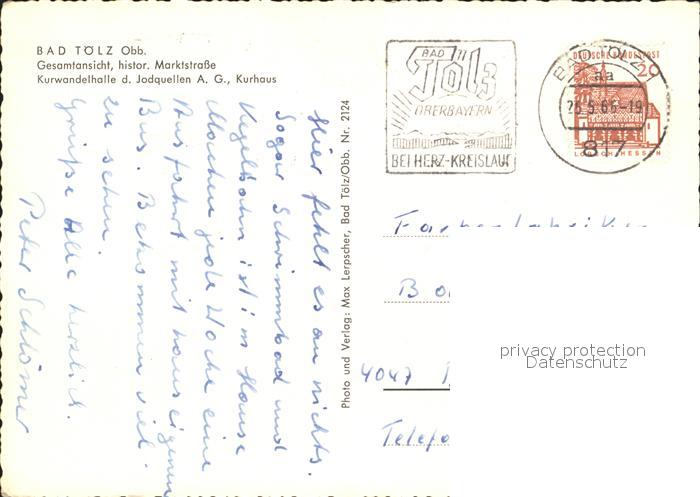 BAD TÖLZ Obb.
Gesamtansicht, histor. Marktstraße
Kurwandelhalle d. Jodquellen A. G., Kurhaus
Hier fehlt es an nichts.
Sogar Schwimmbad und
Kegelbahn ist im Hause
Machen jede Woche eine
Ausfahrt mit hauseigenem
Bus. Bekommen viel
zu sehen.
Grüße Alle herzlich.
Peter Schlömer
Photo und Verlag: Max Lerpscher, Bad Tölz/Obb. Nr. 2124
BAD
Tölz
OBERBAYERN
BEI HERZ-KREISLAUF
DEUTSCHE BUNDESPOST
20
LORSCH/HESSEN
BAD TÖLZ 1
na
5.66-19
817
4047
privacy protection
Datenschutz